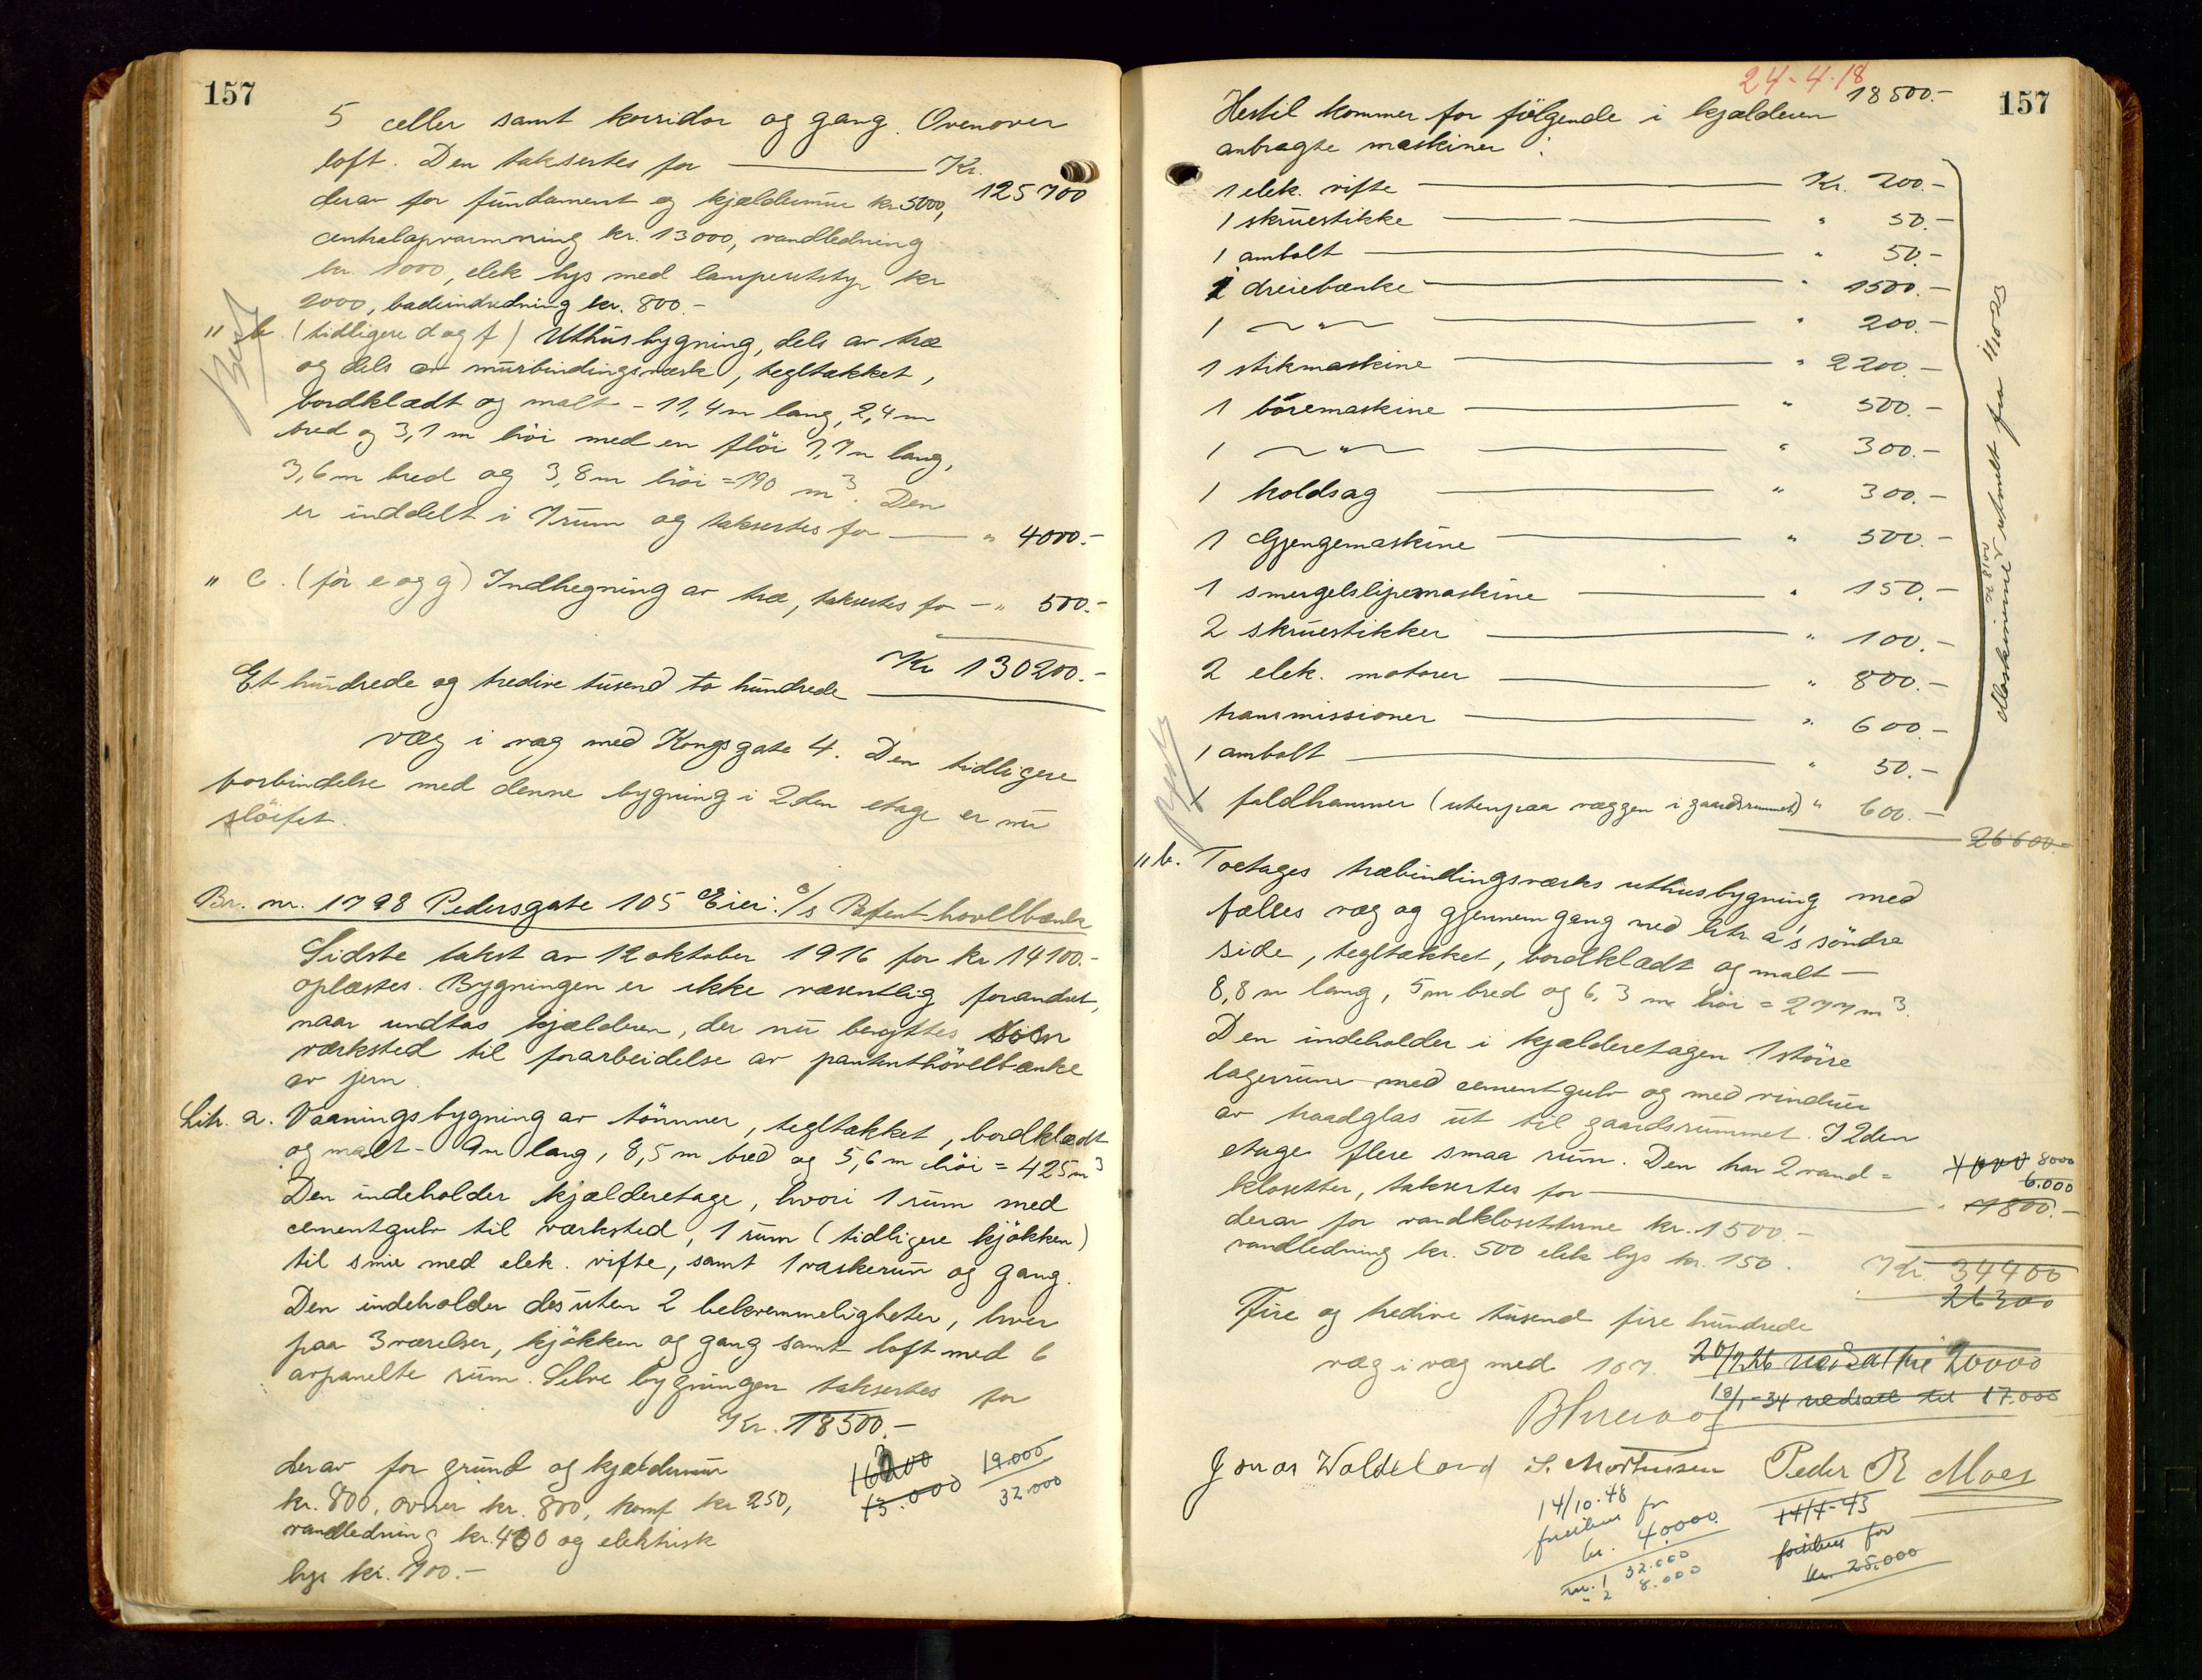 157
5 celler samt korridor og gang. Ovenover
loft. Den taksertes for — Kr. 125700
derav for fundament og kjældermur kr 5000,
centralopvarmning kr. 13000, vandledning
kr. 1000, elek lys med lampeutstyr kr
2000, badeindredning kr. 800.-
" b. (tidligere d og f) Uthusbygning, dels av træ
og dels av murbindingsværk, tegltækket,
bordklædt og malt - 11,4 m lang, 2,4 m
bred og 3,1 m höi med en flöi 7,7 m lang,
3,6 m bred og 3,8 m höi = 190 m³. Den
er inddelt i 7 rum og taksertes for — " 4000.-
" c. (för e og g) Indhegning av træ, taksertes for - " 500.-
Kr 130200.-
Et hundrede og tredive tusend to hundrede
væg i væg med Kongsgate 4. Den tidligere
forbindelse med denne bygning i 2den etage er nu
slöifet.
Br. nr. 1798 Pedersgate 105 Eier: A/s Patenthövlbænk
Sidste takst av 12 oktober 1916 for kr 14100.-
oplæstes. Bygningen er ikke væsentlig forandret,
naar undtas kjælderen, der nu benyttes som
verksted til forarbeidelse av pantenthövelbænke
av jern.
Litr. a. Vaaningsbygning av tömmer, tegltækket, bordklædt
og malt - 9 m lang, 8,5 m bred og 5,6 m höi = 425 m³
Den indeholder kjælderetage, hvori 1 rum med
cementgulv til værksted, 1 rum (tidligere kjökken)
til smie med elek. vifte, samt 1 vaskerum og gang.
Den indeholder desuten 2 bekvemmeligheter, hver
paa 3 værelser, kjökken og gang samt loft med 6
avpanelte rum. Selve bygningen taksertes for
Kr. 18500.-
derav for grund og kjældermur
kr. 800, ovner kr. 800, komf kr 250,
vandledning kr. 400 og elektrisk
lys kr. 700.-
13.000
19.000
32.000
24-4-18
157
Hertil kommer for fölgende i kjælderen 18500.-
anbragte maskiner:
1 elek. vifte — Kr. 200.-
1 skruestikke — " 50.-
1 ambolt — " 50.-
1 dreiebænke — " 1500.-
1 ~"~ — " 200.-
1 stikmaskine — " 2200.-
1 böremaskine — " 500.-
1 ~"~ — " 300.-
1 koldsag — " 300.-
1 Gjengemaskine — " 500.-
1 smergelslipemaskine — " 150.-
2 skruestikker — " 100.-
2 elek. motorer — " 800.-
transmissioner — " 600.-
1 ambolt — " 50.-
1 faldhammer (utenpaa væggen i gaardsrummet) " 600.-
26600.-
Maskinerne utmeldt fra 11.10.23
kr 8100
" b. Toetages træbindingsværks uthusbygning med
fælles væg og gjennemgang med litr. a's söndre
side, tegltækket, bordklædt og malt —
8,8 m lang, 5 m bred og 6,3 m höi = 277 m³.
Den indeholder i kjælderetagen 1 större
lagerrum med cementgulv og med vinduer
av traadglas ut til gaardsrummet. I 2den
etage flere smaa rum. Den har 2 vand=
klosetter, taksertes for — " 7800.-
7000 8000
6.000
derav for vandklosetterne kr. 1500.-
vandledning kr. 500 elek lys kr. 150.
Kr. 34400
26300
Fire og tredive tusend fire hundrede
væg i væg med 107. 20/7 26 nedsat til 20000
18/1-34 nedsatt til 17.000
Jonas Woldeland S. Mortensen Peder R Moes
14/10-48
forsikres for
kr. 40000
nr. 1 32.000
" 2 8.000
14/4-43
forsikres for
kr. 25.000